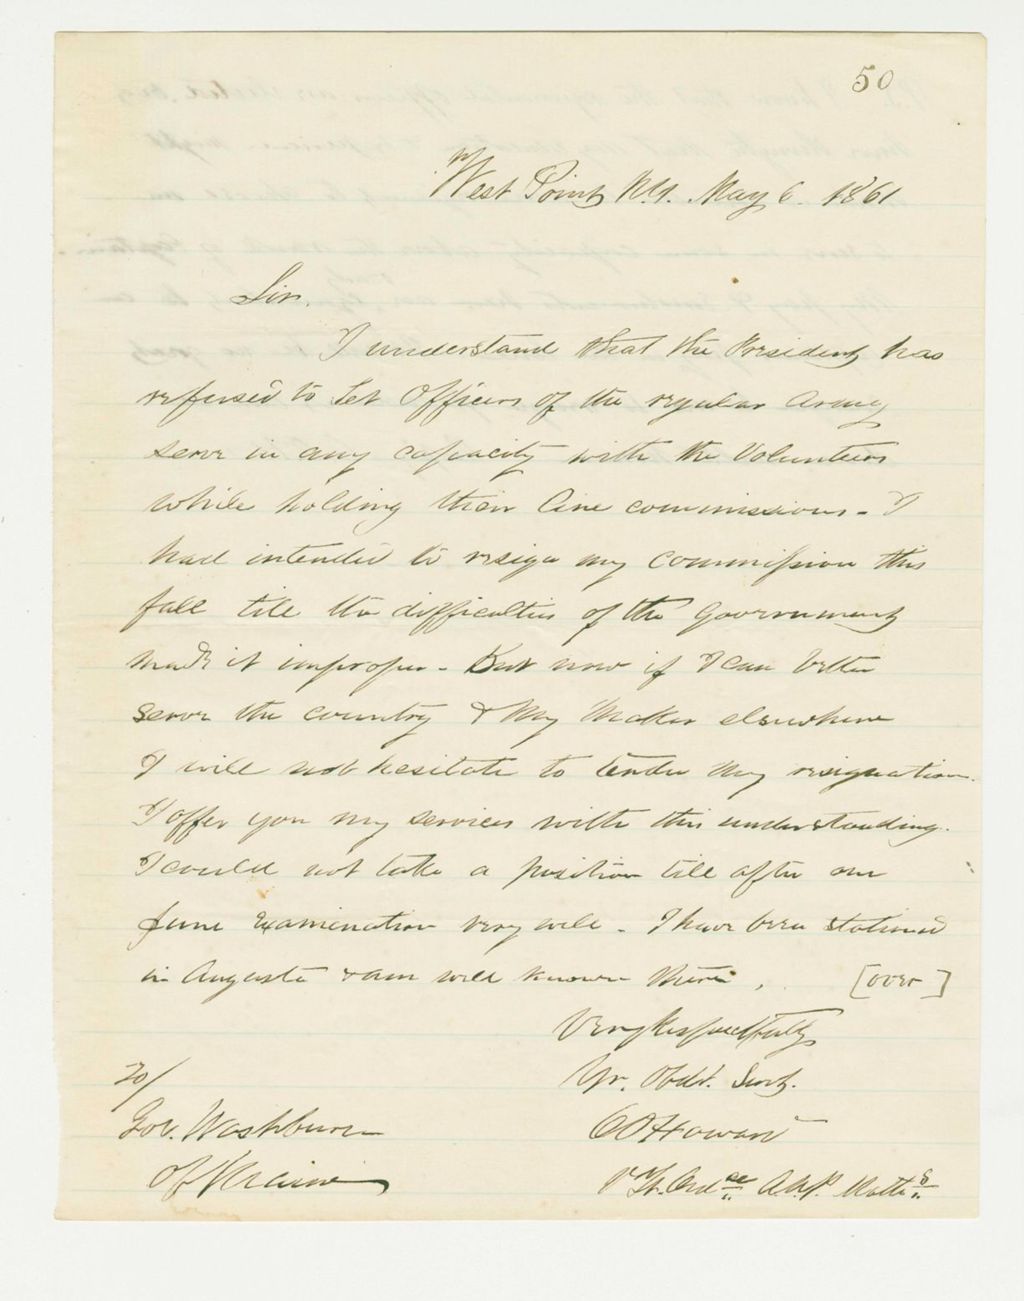 50
West Point, N.Y. May 6. 1861
Sir.
I understand that the President has
refused to let Officers of the regular Army
serve in any capacity with the Volunteers
while holding their line commissions - I
had intended to resign my commission this
fall till the difficulties of the Government
made it improper - But now if I can better
serve the country & My Maker elsewhere
I will not hesitate to tender my resignation.
I offer you my services with this understanding.
I could not take a position till after our
June Examination very well - I have been stationed
in Augusta & am well known there. [over]
Very Respectfully
Yr. Obdt. Servt.
To/
Gov. Washburn
O O Howard
Of Maine
Lt. Ordce A.A.P. Maths